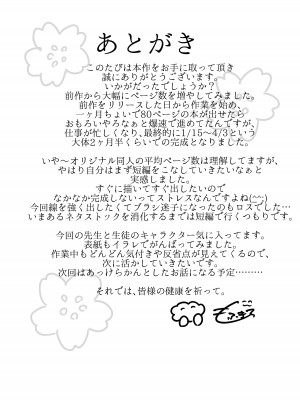 あとがき
このたびは本作をお手に取って頂き
誠にありがとうございます。
いかがだったでしょうか？
前作から大幅にページ数を増やしてみました。
前作をリリースした日から作業を始め、
一ヶ月ちょいで80ページの本が出せたら
おもろいやろなぁと爆速で進めてたんですが、
仕事が忙しくなり、最終的に11/15～4/3という
大体2ヶ月半くらいでの完成となりました。
いや～オリジナル同人の平均ページ数は理解してますが、
やはり自分はまず短編をこなしていきたいなぁと
実感しました。
すぐに描いてすぐ出したいので
なかなか完成しないってストレスなんですよね(^^;)
今回線を強く出したくてブラシ迷子になったのもロスでした…
いまあるネタストックを消化するまでは短編で行くつもりです。
今回の先生と生徒のキャラクター気に入ってます。
表紙もイラレでがんばってみました。
作業中もどんどん気付きや反省点が見えてくるので、
次に活かしていきたいです。
次回はあっけらかんとしたお話になる予定………
それでは、皆様の健康を祈って。